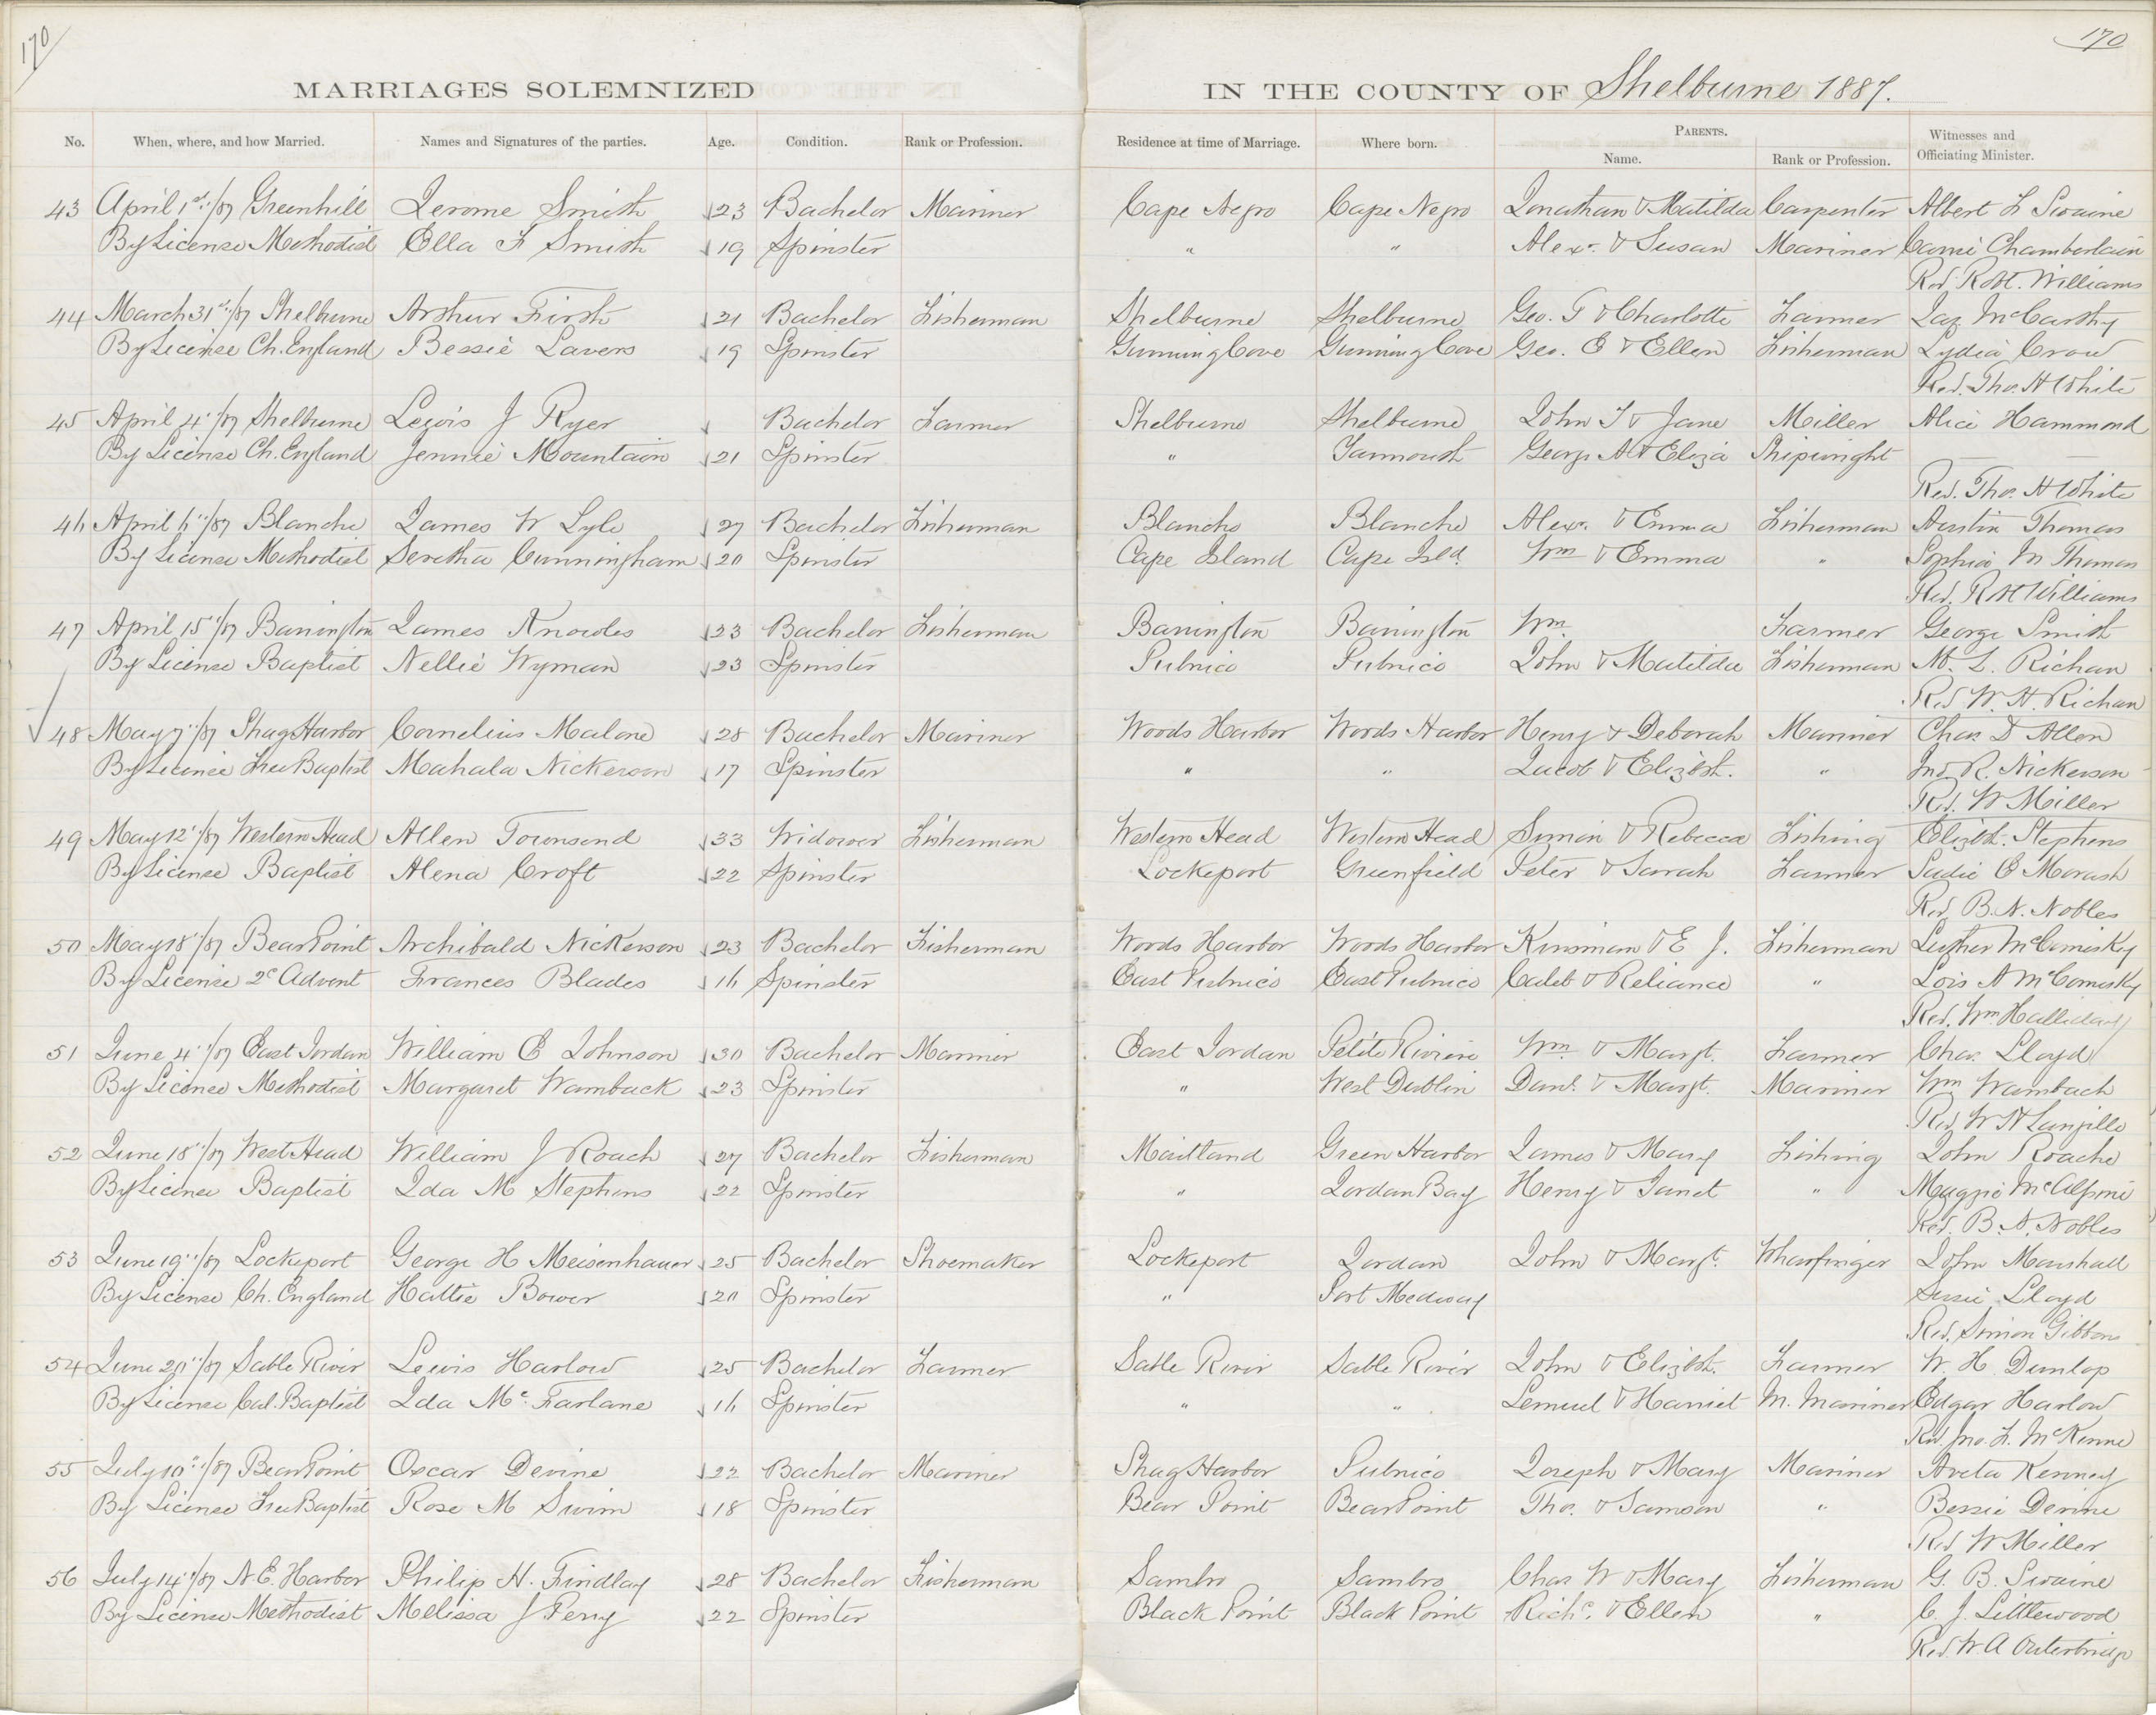 170
170
MARRIAGES SOLEMNIZED IN THE COUNTY OF Shelburne 1887.
No. When, where, and how Married. Names and Signatures of the parties. Age. Condition. Rank or Profession. Residence at time of Marriage. Where born. PARENTS. Name. Rank or Profession. Witnesses and Officiating Minister.
43 April 1st/87 Greenhill Jerome Smith 23 Bachelor Mariner Cape Negro Cape Negro Jonathan & Matilda Carpenter Albert F Swaine
By License Methodist Ella F Smith 19 Spinster " " Alexr. & Susan Mariner Chamberlain
Rev. R. H. Williams
44 March 31st/87 Shelburne Arthur Firth 21 Bachelor Fisherman Shelburne Shelburne Geo. T & Charlotte Farmer Jas McCarthy
By License Ch. England Bessie Lavers 19 Spinster Gunning Cove Gunning Cove Geo. E & Ellen Fisherman Lydia Crow
Rev. Thos. H White
45 April 4"/87 Shelburne Lewis J Ryer Bachelor Farmer Shelburne Shelburne John & Jane Miller Alice Hammond
By License Ch. England Jennie Mountain 21 Spinster " Yarmouth George A & Eliza Shipwright
Rev. Thos. H White
46 April 6"/87 Blanche James W Lyle 27 Bachelor Fisherman Blanche Blanche Alexr. & Emma Fisherman Austin Thomas
By License Methodist Seretha Cunningham 20 Spinster Cape Island Cape Isld. Wm & Emma " Sophia M Thomas
Rev. R H Williams
47 April 15"/87 Barrington James Knowles 23 Bachelor Fisherman Barrington Barrington Wm. Farmer George Smith
By License Baptist Nellie Wyman 23 Spinster Pubnico Pubnico John & Matilda Fisherman M. L. Richan
Rev W. H. Richan
48 May 7"/87 Shag Harbor Cornelius Malone 28 Bachelor Mariner Woods Harbor Woods Harbor Henry & Deborah Mariner Chas D Allen
By License Free Baptist Mahala Nickerson 17 Spinster " " Jacob & Elizbth. " Jno. R. Nickerson
Rev. W Miller
49 May 12"/87 Western Head Allen Townsend 33 Widower Fisherman Western Head Western Head Simon & Rebecca Fishing Elizbth. Stephens
By License Baptist Alena Croft 22 Spinster Lockeport Greenfield Peter & Sarah Farmer Sadie E Morash
Rev. B. N. Nobles
50 May 18"/87 Bear Point Archibald Nickerson 23 Bachelor Fisherman Woods Harbor Woods Harbor Kinsman & E J. Fisherman Luther McComisky
By License 2d Advent Frances Blades 16 Spinster East Pubnico East Pubnico Caleb & Reliance " Lois A McComisky
Rev. Wm Halliday
51 June 4"/87 East Jordan William E Johnson 30 Bachelor Mariner East Jordan Petite Riviere Wm. & Margt. Farmer Chas. Lloyd
By License Methodist Margaret Wamback 23 Spinster " West Dublin Danl. & Margt. Mariner Wm Wambach
Rev. W H Langille
52 June 18"/87 West Head William J Roach 27 Bachelor Fisherman Maitland Green Harbor James & Mary Fishing John Roache
By License Baptist Ida M Stephens 22 Spinster " Jordan Bay Henry & Janet " Maggie McAlpine
Rev. B. N. Nobles
53 June 19"/87 Lockeport George H Meisenhauer 25 Bachelor Shoemaker Lockeport Jordan John & Margt. Wharfinger John Marshall
By License Ch. England Hattie Bower 20 Spinster " Port Medway Susie Lloyd
Rev. Simon Gibbons
54 June 20"/87 Sable River Lewis Harlow 25 Bachelor Farmer Sable River Sable River John & Elizbth. Farmer W. H. Dunlop
By License Cal. Baptist Ida McFarlane 16 Spinster " " Lemuel & Harriet M. Mariner Edgar Harlow
Rev. Jno. F. McKenne
55 July 10"/87 Bear Point Oscar Devine 22 Bachelor Mariner Shag Harbor Pubnico Joseph & Mary Mariner Aveta Kenney
By License Free Baptist Rose M Swim 18 Spinster Bear Point Bear Point Thos. & Samson " Bessie Devine
Rev W Miller
56 July 14"/87 N. E. Harbor Philip H. Findlay 28 Bachelor Fisherman Sambro Sambro Chas W & Mary Fisherman G. B. Swaine
By License Methodist Melissa J Perry 22 Spinster Black Point Black Point Richd. & Ellen " C. J. Littlewood
Rev. W A Outerbridge